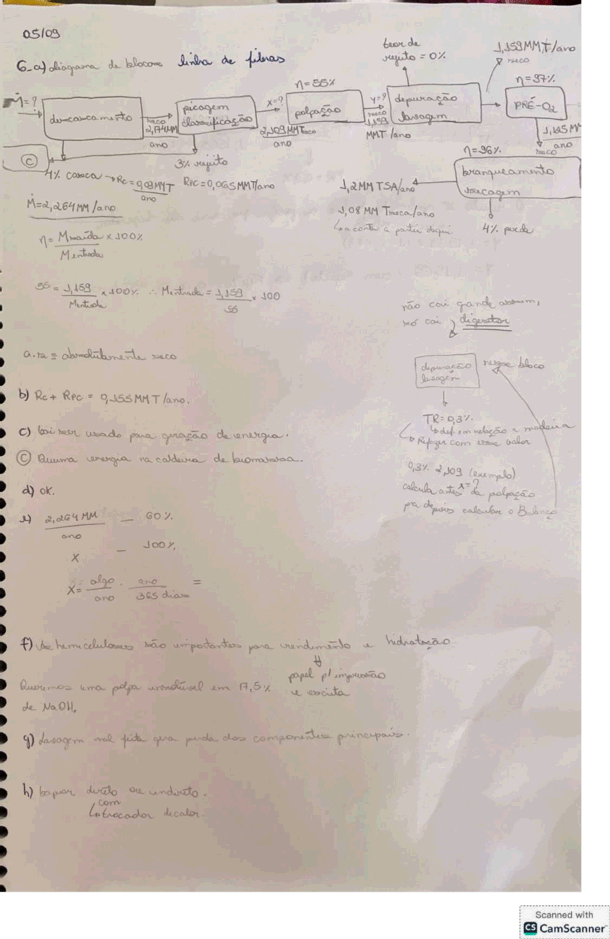 05/09
6-a) diagrama de blocos linha de fibras
teor de
rejeito = 0%
1,159 MMT/ano
η=55%
η=97%
Ṁ=?
descascamento
seco
2,174MM
ano
picagem
classificação
X=?
2,109 MMTseco
ano
polpação
y=?
seco
1,159
MMT/ano
depuração
lavagem
PRÉ-O2
ano
seco
η=96%
branqueamento
secagem
C
4% casca → Rc = 0,09MMT
ano
3% rejeito
RPC=0,065MMT/ano
1,2MM TSA/ano
1,08 MM Tseca/ano
↳ a conta é a partir daqui
4% perda
Ṁ=2,264MM/ano
η = Msaída x 100%
Mentrada
55 = 1,159 x 100% ∴ Mentrada = 1,159 x 100
Mentrada
55
não cai grande assim,
só cai digestor
a.s = absolutamente seco
depuração
lavagem
nesse bloco
TR=0,3%
↳ def em relação a madeira
↳ Refazer com esse valor
b) Rc + RPC = 0,155 MMT/ano.
c) Vai ser usado para geração de energia.
C Queima energia na caldeira de biomassa.
0,3% 2,109 (exemplo)
calcula antes x=? da polpação
pra depois calcular o Balanço
d) OK.
e) 2,264MM — 60%
ano
X — 100%
X = algo . ano =
ano 365 dias
f) As hemiceluloses são importantes para rendimento e hidratação
papel p/ impressão
e escrita
Queremos uma polpa insolúvel em 17,5%
de NaOH.
g) Lavagem mal feita gera perda dos componentes principais.
h) Vapor direto ou indireto.
↳ com
trocador de calor
Scanned with
CS CamScanner